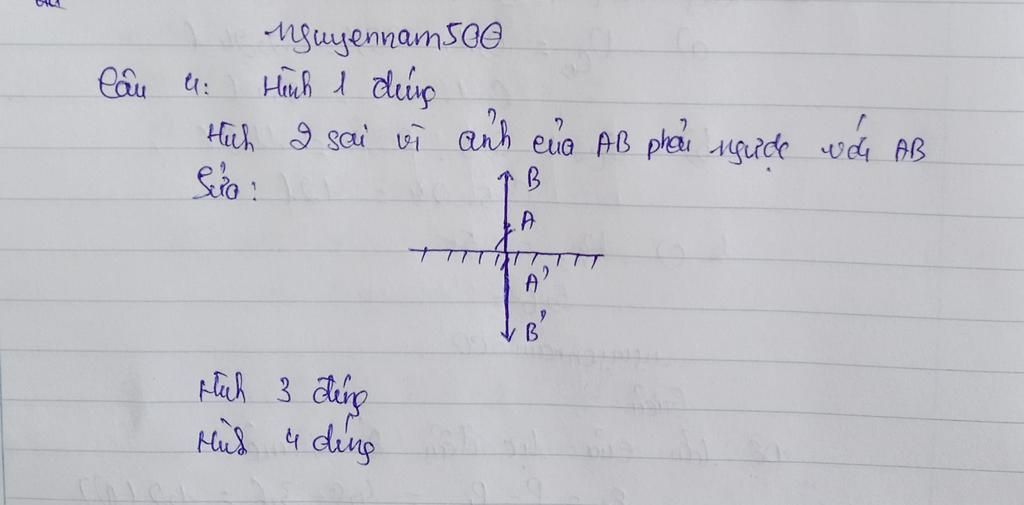 nguyennam500
Câu 4: Hình 1 đúng
Hình 2 sai vì ảnh của AB phải ngược với AB
Sửa:
B
A
A'
B'
Hình 3 đúng
Hình 4 đúng